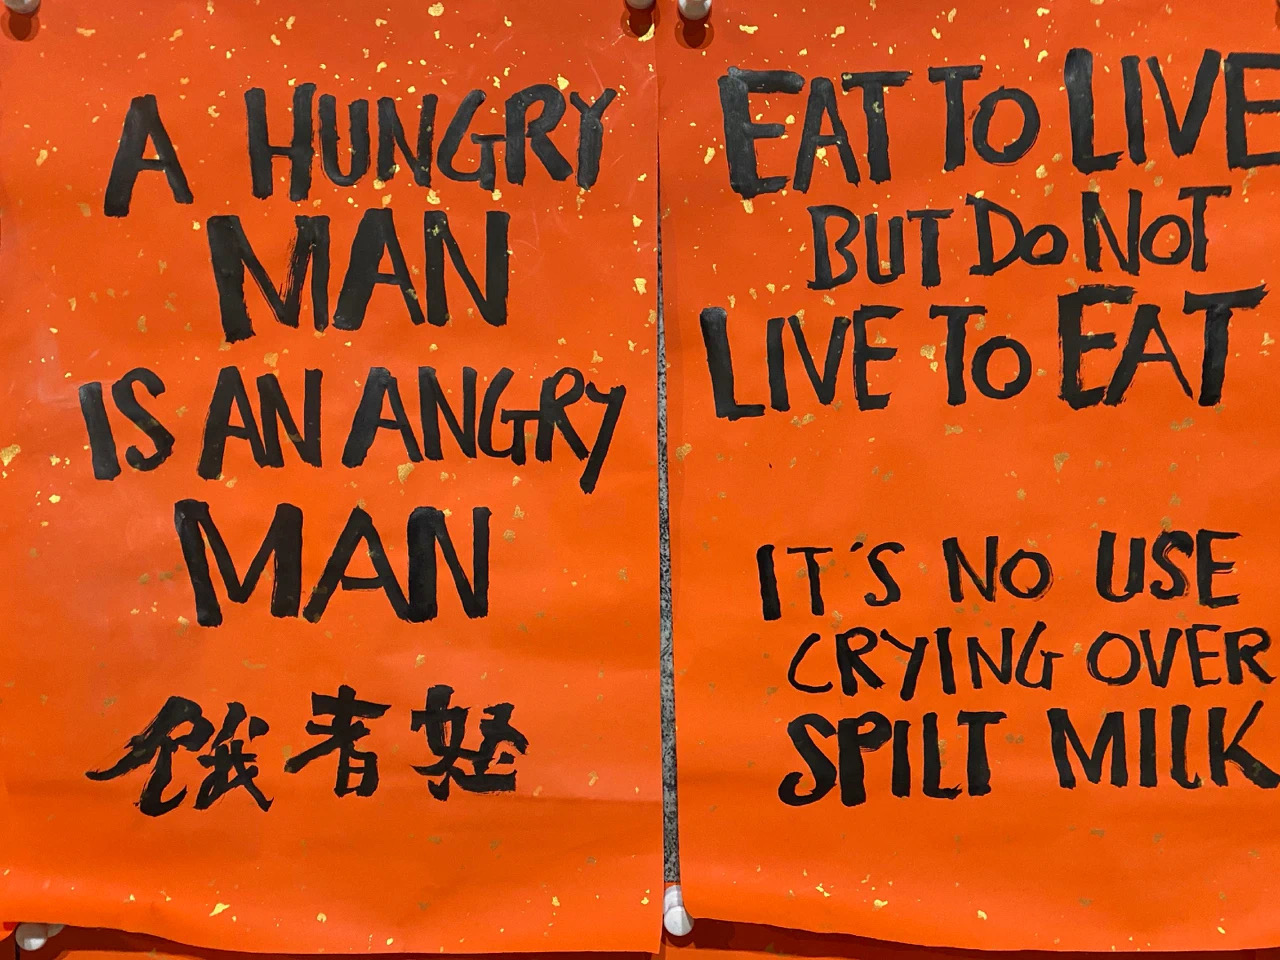 A HUNGRY
MAN
IS AN ANGRY
MAN
餓者怒
EAT TO LIVE
BUT DO NOT
LIVE TO EAT
IT'S NO USE
CRYING OVER
SPILT MILK